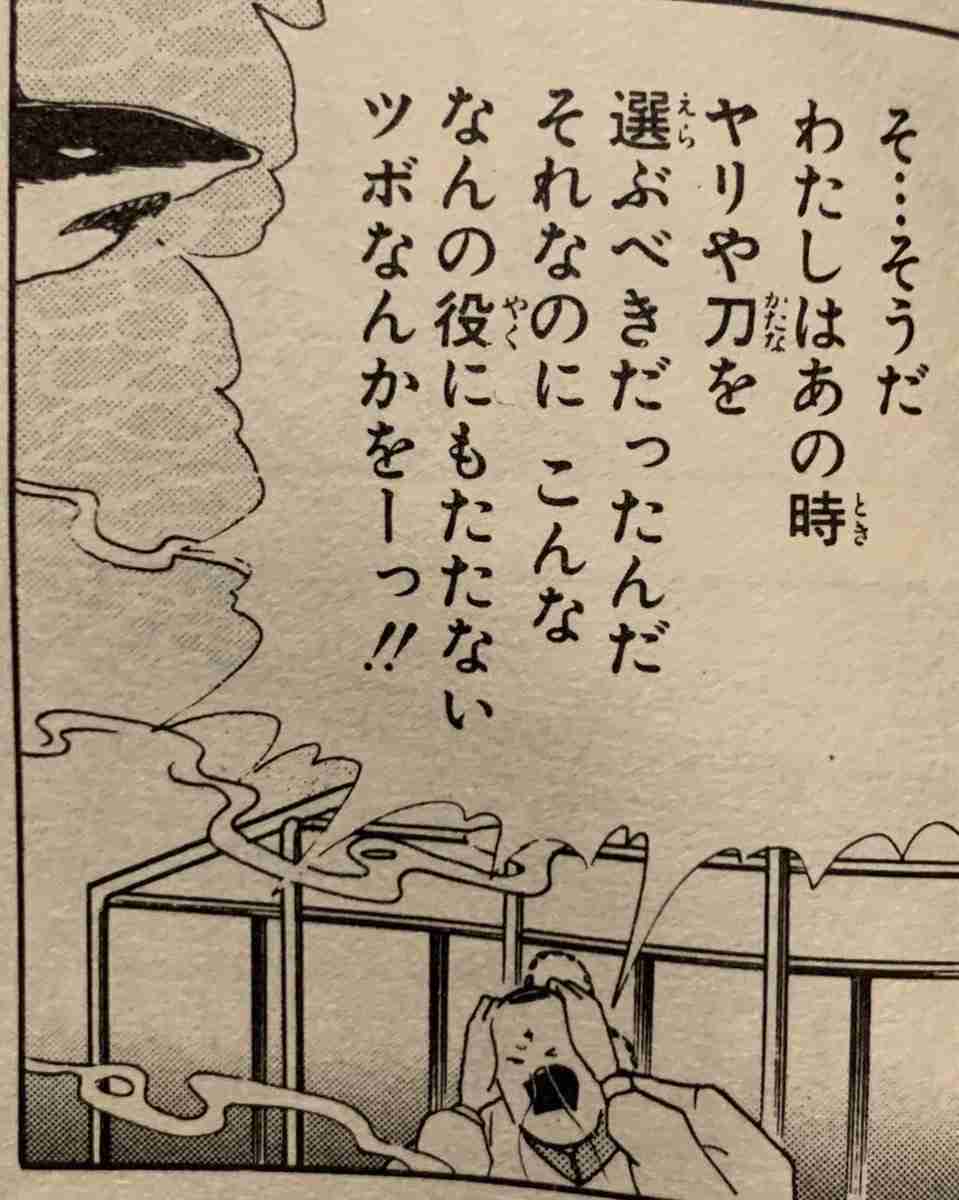 そ…そうだ
わたしはあの時
ヤリや刀を
選ぶべきだったんだ
それなのに こんな
なんの役にもたたない
ツボなんかをーっ!!